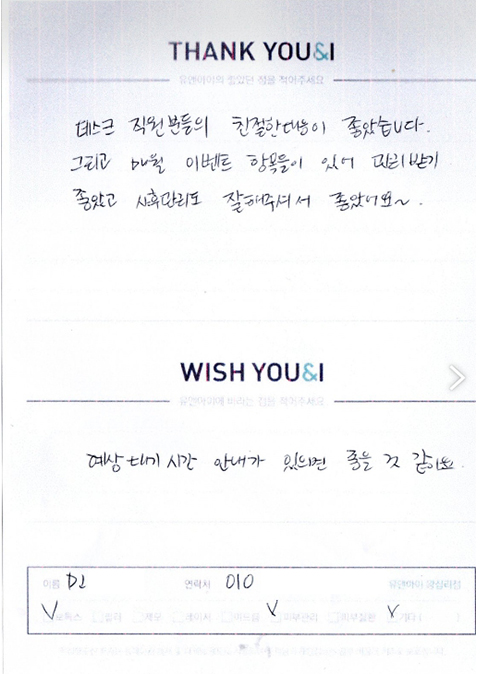 THANK YOU&I
유앤아이의 좋았던 점을 적어주세요
데스크 직원분들의 친절한대응이 좋았습니다.
그리고 매월 이벤트 항목들이 있어 관리받기
좋았고 사후관리도 잘해주셔서 좋았어요~.
WISH YOU&I
유앤아이에 바라는 점을 적어주세요
예상대기시간 안내가 있으면 좋을 것 같아요.
이름 연락처 010 유앤아이 왕십리점
V 보톡스 필러 제모 레이저 여드름 V 피부관리 피부질환 V 기타 ( )